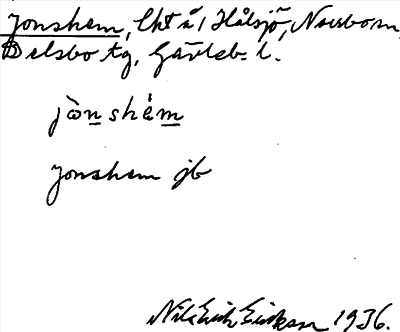 Jonshem, lht å, Hålsjö, Norrbo sn,
Delsbo tg, Gävleb. l.
jòn shém
Jonshem jb
Nils Erik Eriksson 1936.